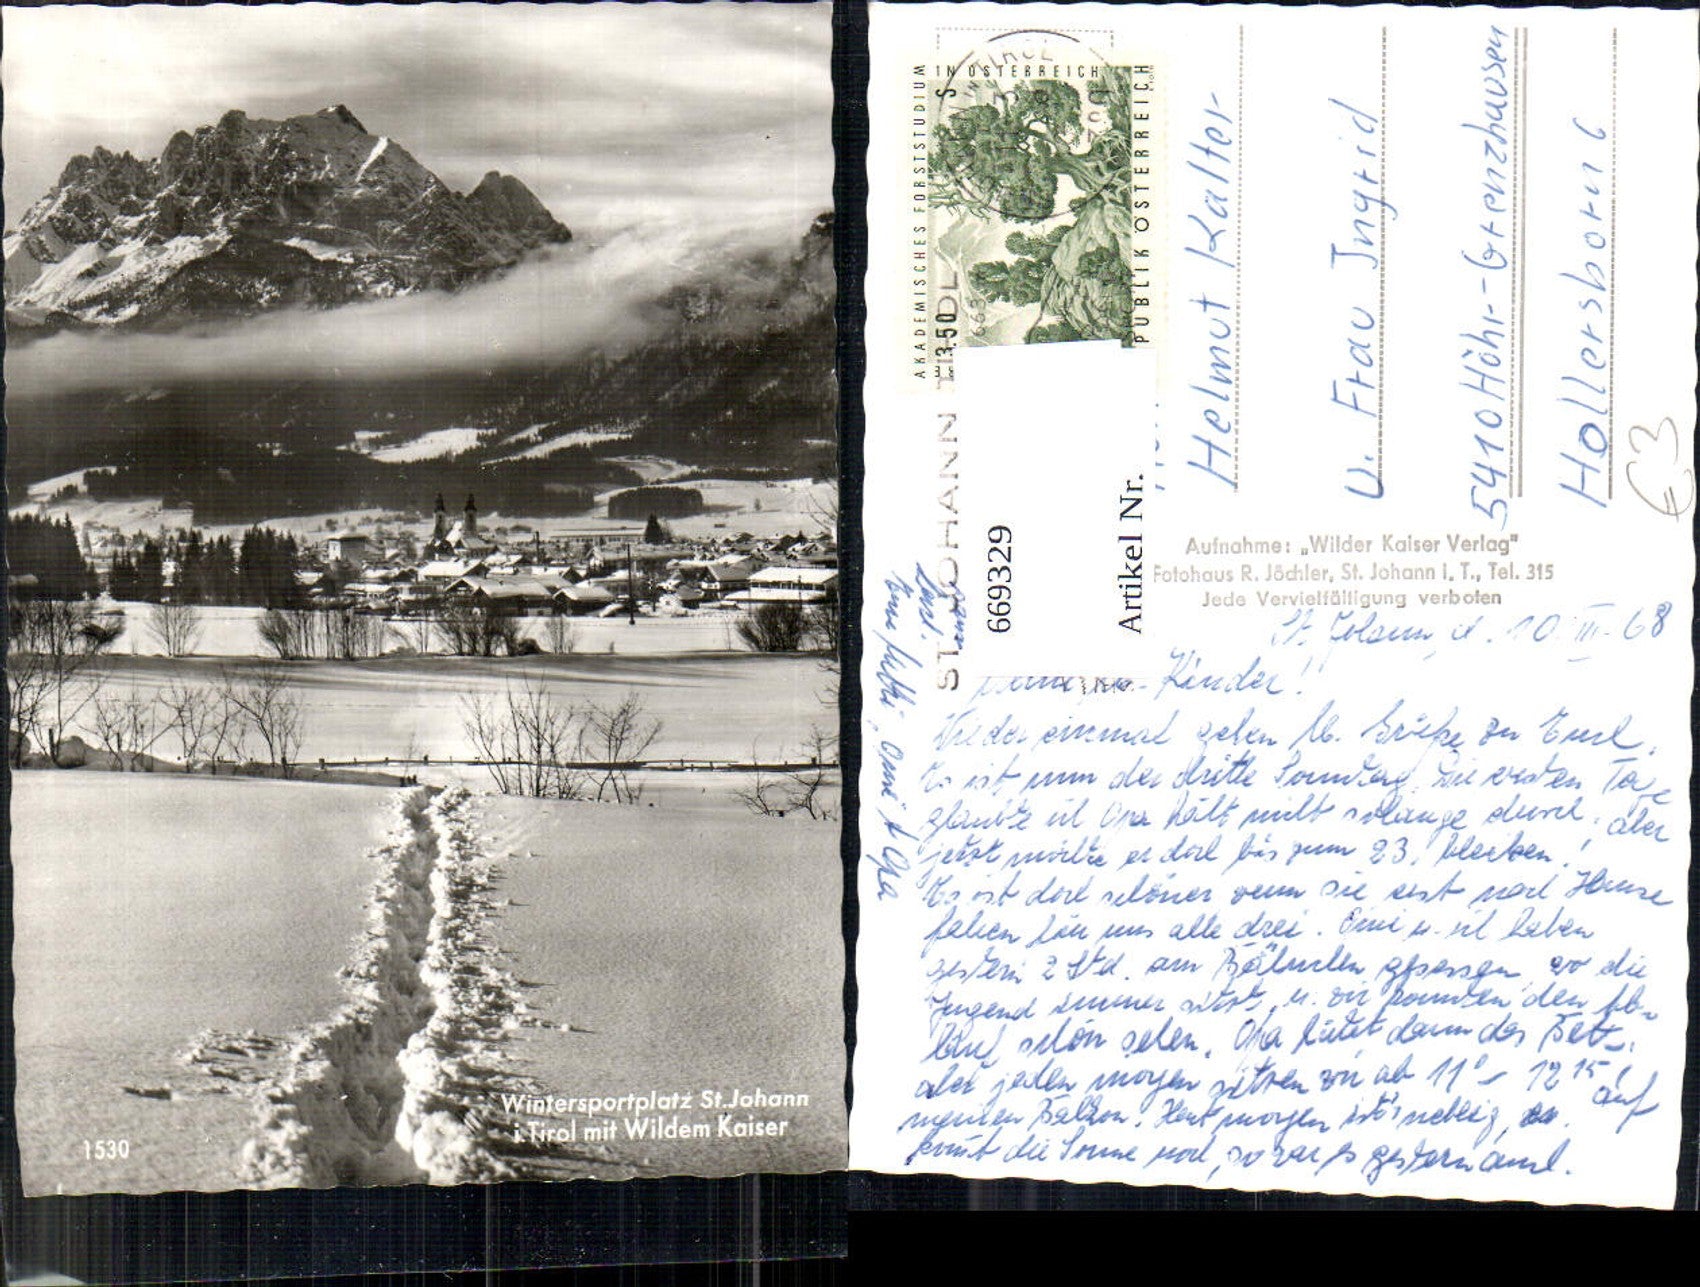 Wintersportplatz St.Johann
i.Tirol mit Wildem Kaiser
1530
AKADEMISCHES FORSTSTUDIUM
IN ÖSTERREICH
REPUBLIK ÖSTERREICH
S 3.50
ST. JOHANN TIROL
669329
Artikel Nr.
Helmut Kalter
u. Frau Ingrid
5410 Höhr-Grenzhausen
Hollersborn 6
€3
Aufnahme: „Wilder Kaiser Verlag"
Fotohaus R. Jöchler, St. Johann i. T., Tel. 315
Jede Vervielfältigung verboten
St. Johann, d. 10. III. 68
Kinder!
Wieder einmal geben lb. Grüße zu Euch.
Es ist nun der dritte Sonntag. Die ersten Tage
glaubte ich Opa hält nicht solange durch, aber
jetzt möchte er doch bis zum 23. bleiben!
Es ist doch schöner wenn sie erst nach Hause
fahren für uns alle drei. Omi u. ich haben
gestern 2 Std. am gesessen, wo die
Jugend immer sitzt, u. wir konnten den Ab-
lauf schön sehen. Opa hütet dann das Bett,
aber jeden morgen sitzen wir ab 11° - 12 15 auf
meinen Balkon. Heut morgen ist's neblig,
kommt die Sonne noch, so war es gestern auch.
Eure Mutti, Omi u. Opa